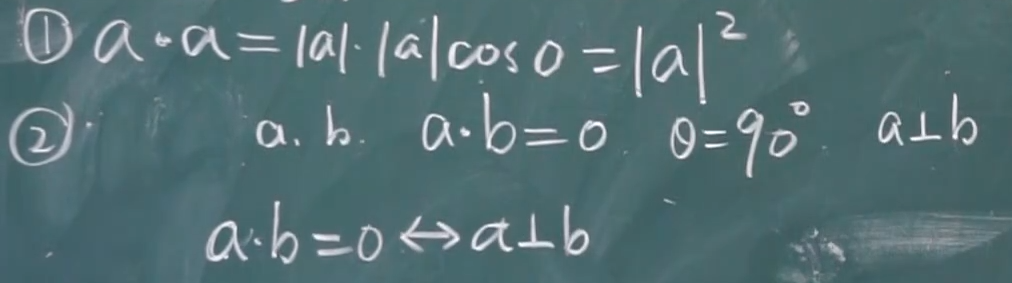 ① a·a=|a|·|a|cos0=|a|²
② a. b. a·b=0. θ=90°. a⊥b
a·b=0↔a⊥b